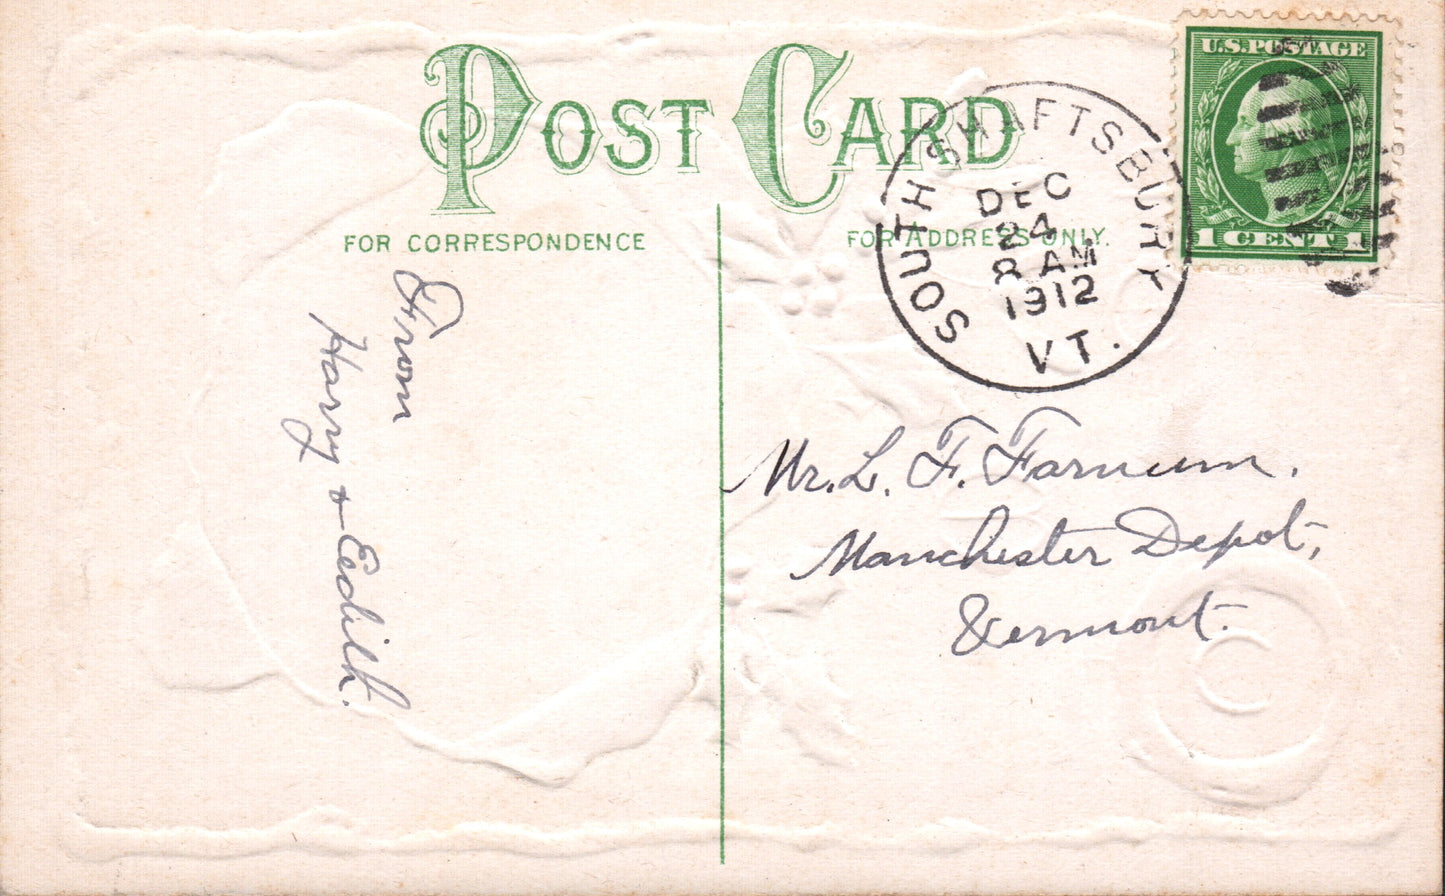 POST CARD
FOR CORRESPONDENCE
FOR ADDRESS ONLY.
U.S. POSTAGE
1 CENT 1
SOUTH SHAFTSBURY
DEC
24
8 AM
1912
VT.
From
Harry & Eedith.
Mr. L. F. Farnum.
Manchester Depot,
Vermont.